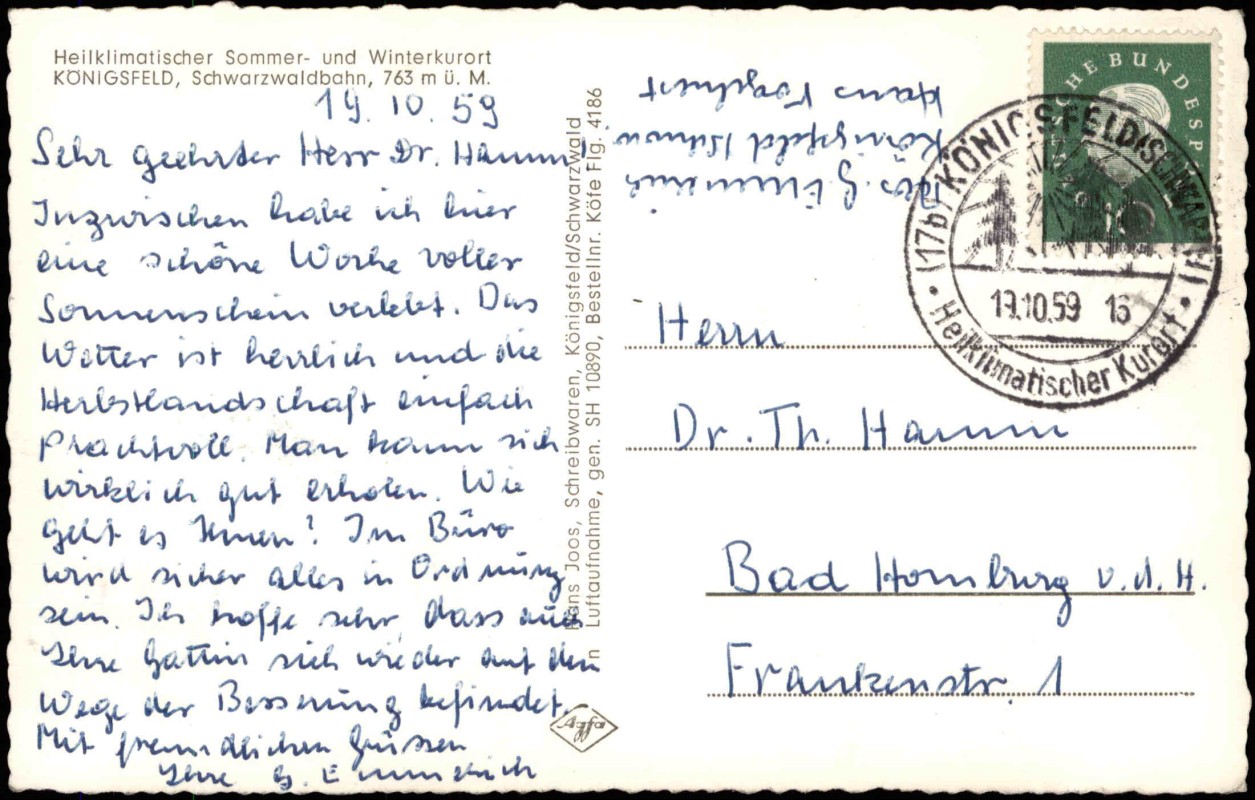 Heilklimatischer Sommer- und Winterkurort
KÖNIGSFELD, Schwarzwaldbahn, 763 m ü. M.
19. 10. 59
Sehr geehrter Herr Dr. Hamm!
Inzwischen habe ich hier
eine schöne Woche voller
Sonnenschein verlebt. Das
Wetter ist herrlich und die
Herbstlandschaft einfach
prachtvoll. Man kann sich
wirklich gut erholen. Wie
geht es Ihnen? Im Büro
wird sicher alles in Ordnung
sein. Ich hoffe sehr, dass auch
Ihre Gattin sich wieder auf dem
Wege der Besserung befindet.
Mit freundlichen Grüssen
Ihre G. Emmerich
Hans Joos, Schreibwaren, Königsfeld/Schwarzwald
Luftaufnahme, gen. SH 10890, Bestellnr. Köfe Flg. 4186
Agfa
Abs. G. Emmerich
Königsfeld Schwarzw.
Haus
DEUTSCHE BUNDESPOST
10
(17b) KÖNIGSFELD (SCHWARZW)
19.10.59 16
Heilklimatischer Kurort
Herrn
Dr. Th. Hamm
Bad Homburg v.d.H.
Frankenstr. 1